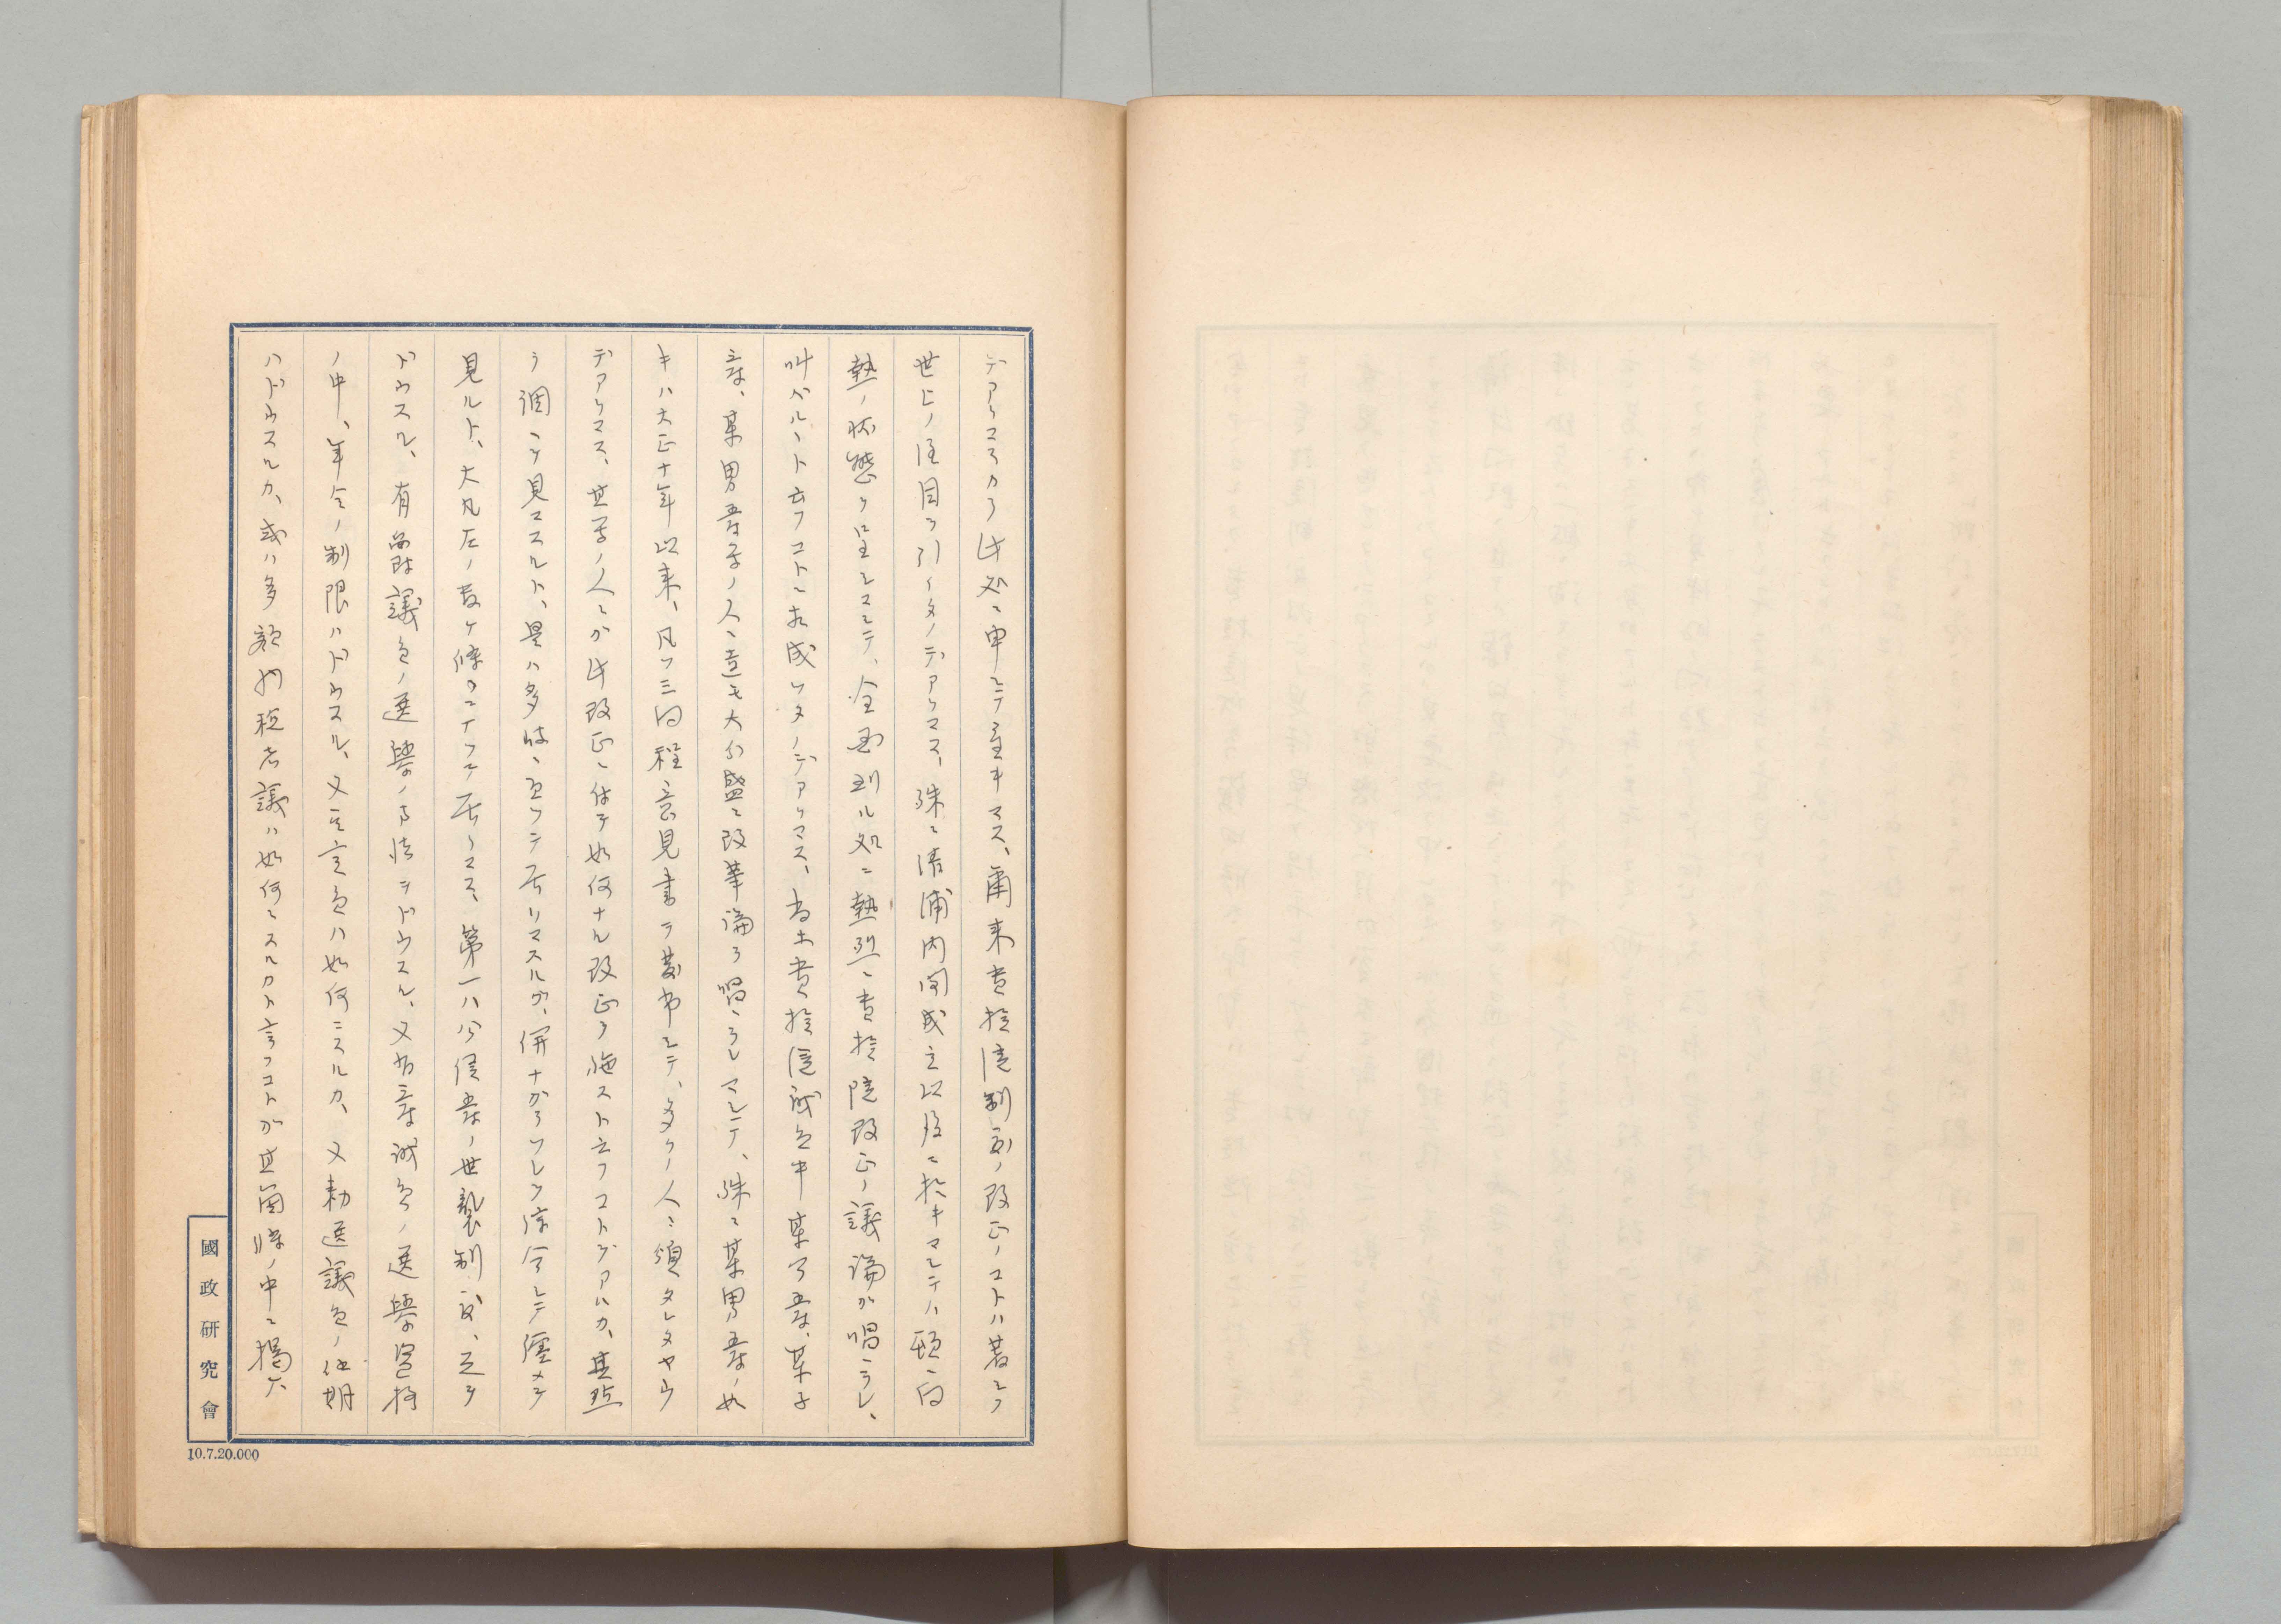 デアリマスカラ此処ニ申シテ置キマス、爾来貴族院制度ノ改正ノコトハ著シク
世上ノ注目ヲ引イタノデアリマス、殊ニ清浦内閣成立以後ニ於キマシテハ頓ニ白
熱ノ状態ヲ呈シマシテ、全国到ル処ニ熱烈ニ貴族院改正ノ議論ガ唱ヘラレ、
叫バルヽト云フコトニ相成ツタノデアリマス、尚ホ貴族院議員中某公爵、某子
爵、某男爵等ノ人々達モ大分盛ニ改革論ヲ唱ヘラレマシテ、殊ニ某男爵ノ如
キハ大正十年以来、凡ソ三回程意見書ヲ発布シテ、多クノ人ニ頒タレタヤウ
デアリマス、其等ノ人々ガ此改正ニ付テ如何ナル改正ヲ施スト云フコトデアルカ、其点
ヲ調ベテ見マスルト、是ハ多岐ニ亙ツテ居リマスルガ、併ナガラソレヲ綜合シテ纏メテ
見ルト、大凡左ノ数ケ條ニナツテ居リマス、第一ハ公侯爵ノ世襲制度、之ヲ
ドウスル、有爵議員ノ選挙ノ方法ヲドウスル、又有爵議員ノ選挙資格
ノ中、年令ノ制限ハドウスル、又定員ハ如何ニスルカ、又勅選議員ノ任期
ハドウスルカ、或ハ多額納税者議員ハ如何ニスルカト言フコトガ其箇條ノ中ニ掲ゲ
國政研究會
10.7.20.000